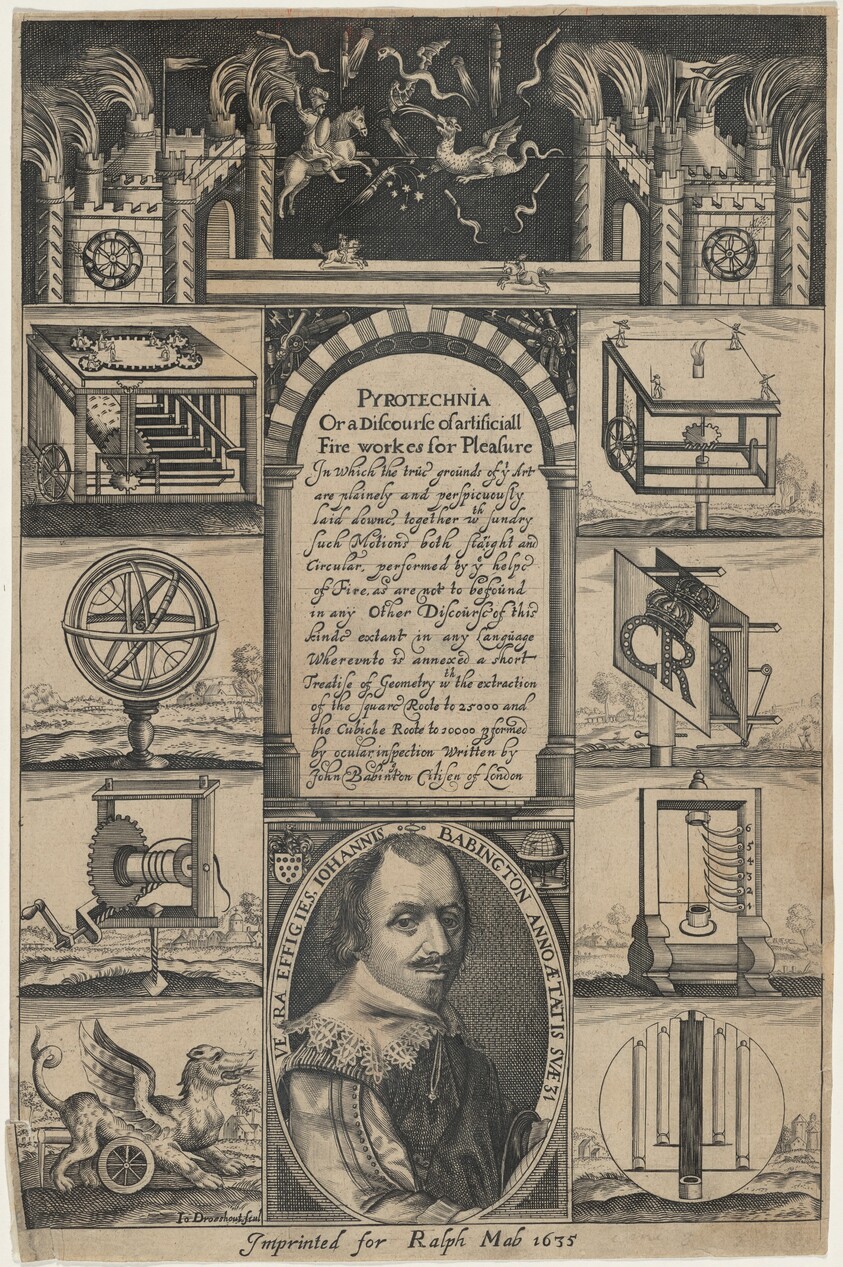 PYROTECHNIA
Or a Discourse of artificiall
Fire workes for Pleasure
In which the true grounds of yͤ Art
are plainely and perspicuously
laid downe, together wᵗʰ sundry
such Motions both straight and
Circular, performed by yͤ helpe
of Fire, as are not to be found
in any Other Discourse of this
kinde extant in any Language
Wherevnto is annexed a short
Treatise of Geometry wᵗʰ the extraction
of the square Roote to 25000 and
the Cubicke Roote to 10000 ꝑformed
by ocular inspection Written by
John Babington Citisen of London
CR
6
5
4
3
2
1
VERA EFFIGIES IOHANNIS BABINGTON ANNO ÆTATIS SVÆ 31
Io Droeshout scul
Imprinted for Ralph Mab 1635